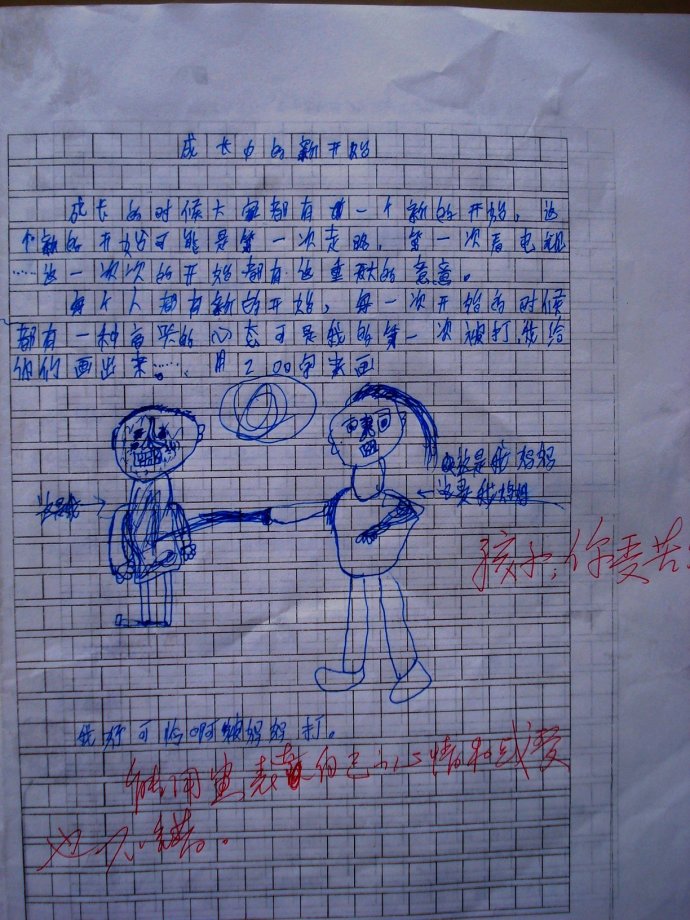 成长中的新开始
成长的时候大家都有一个新的开始，这
个新的开始可能是第一次走路，第一次看电视
……这一次次的开始都有这重大的意意。
每个人都有新的开始，每一次开始的时候
都有一种的心态可是我的第一次被打，我给
你们画出来……、用200字来画
这是我妈妈
这是我
这是我妈妈
孩子，你受苦
我好可怜啊被妈妈打。
能用画表达自己的心情和感受
也不错。